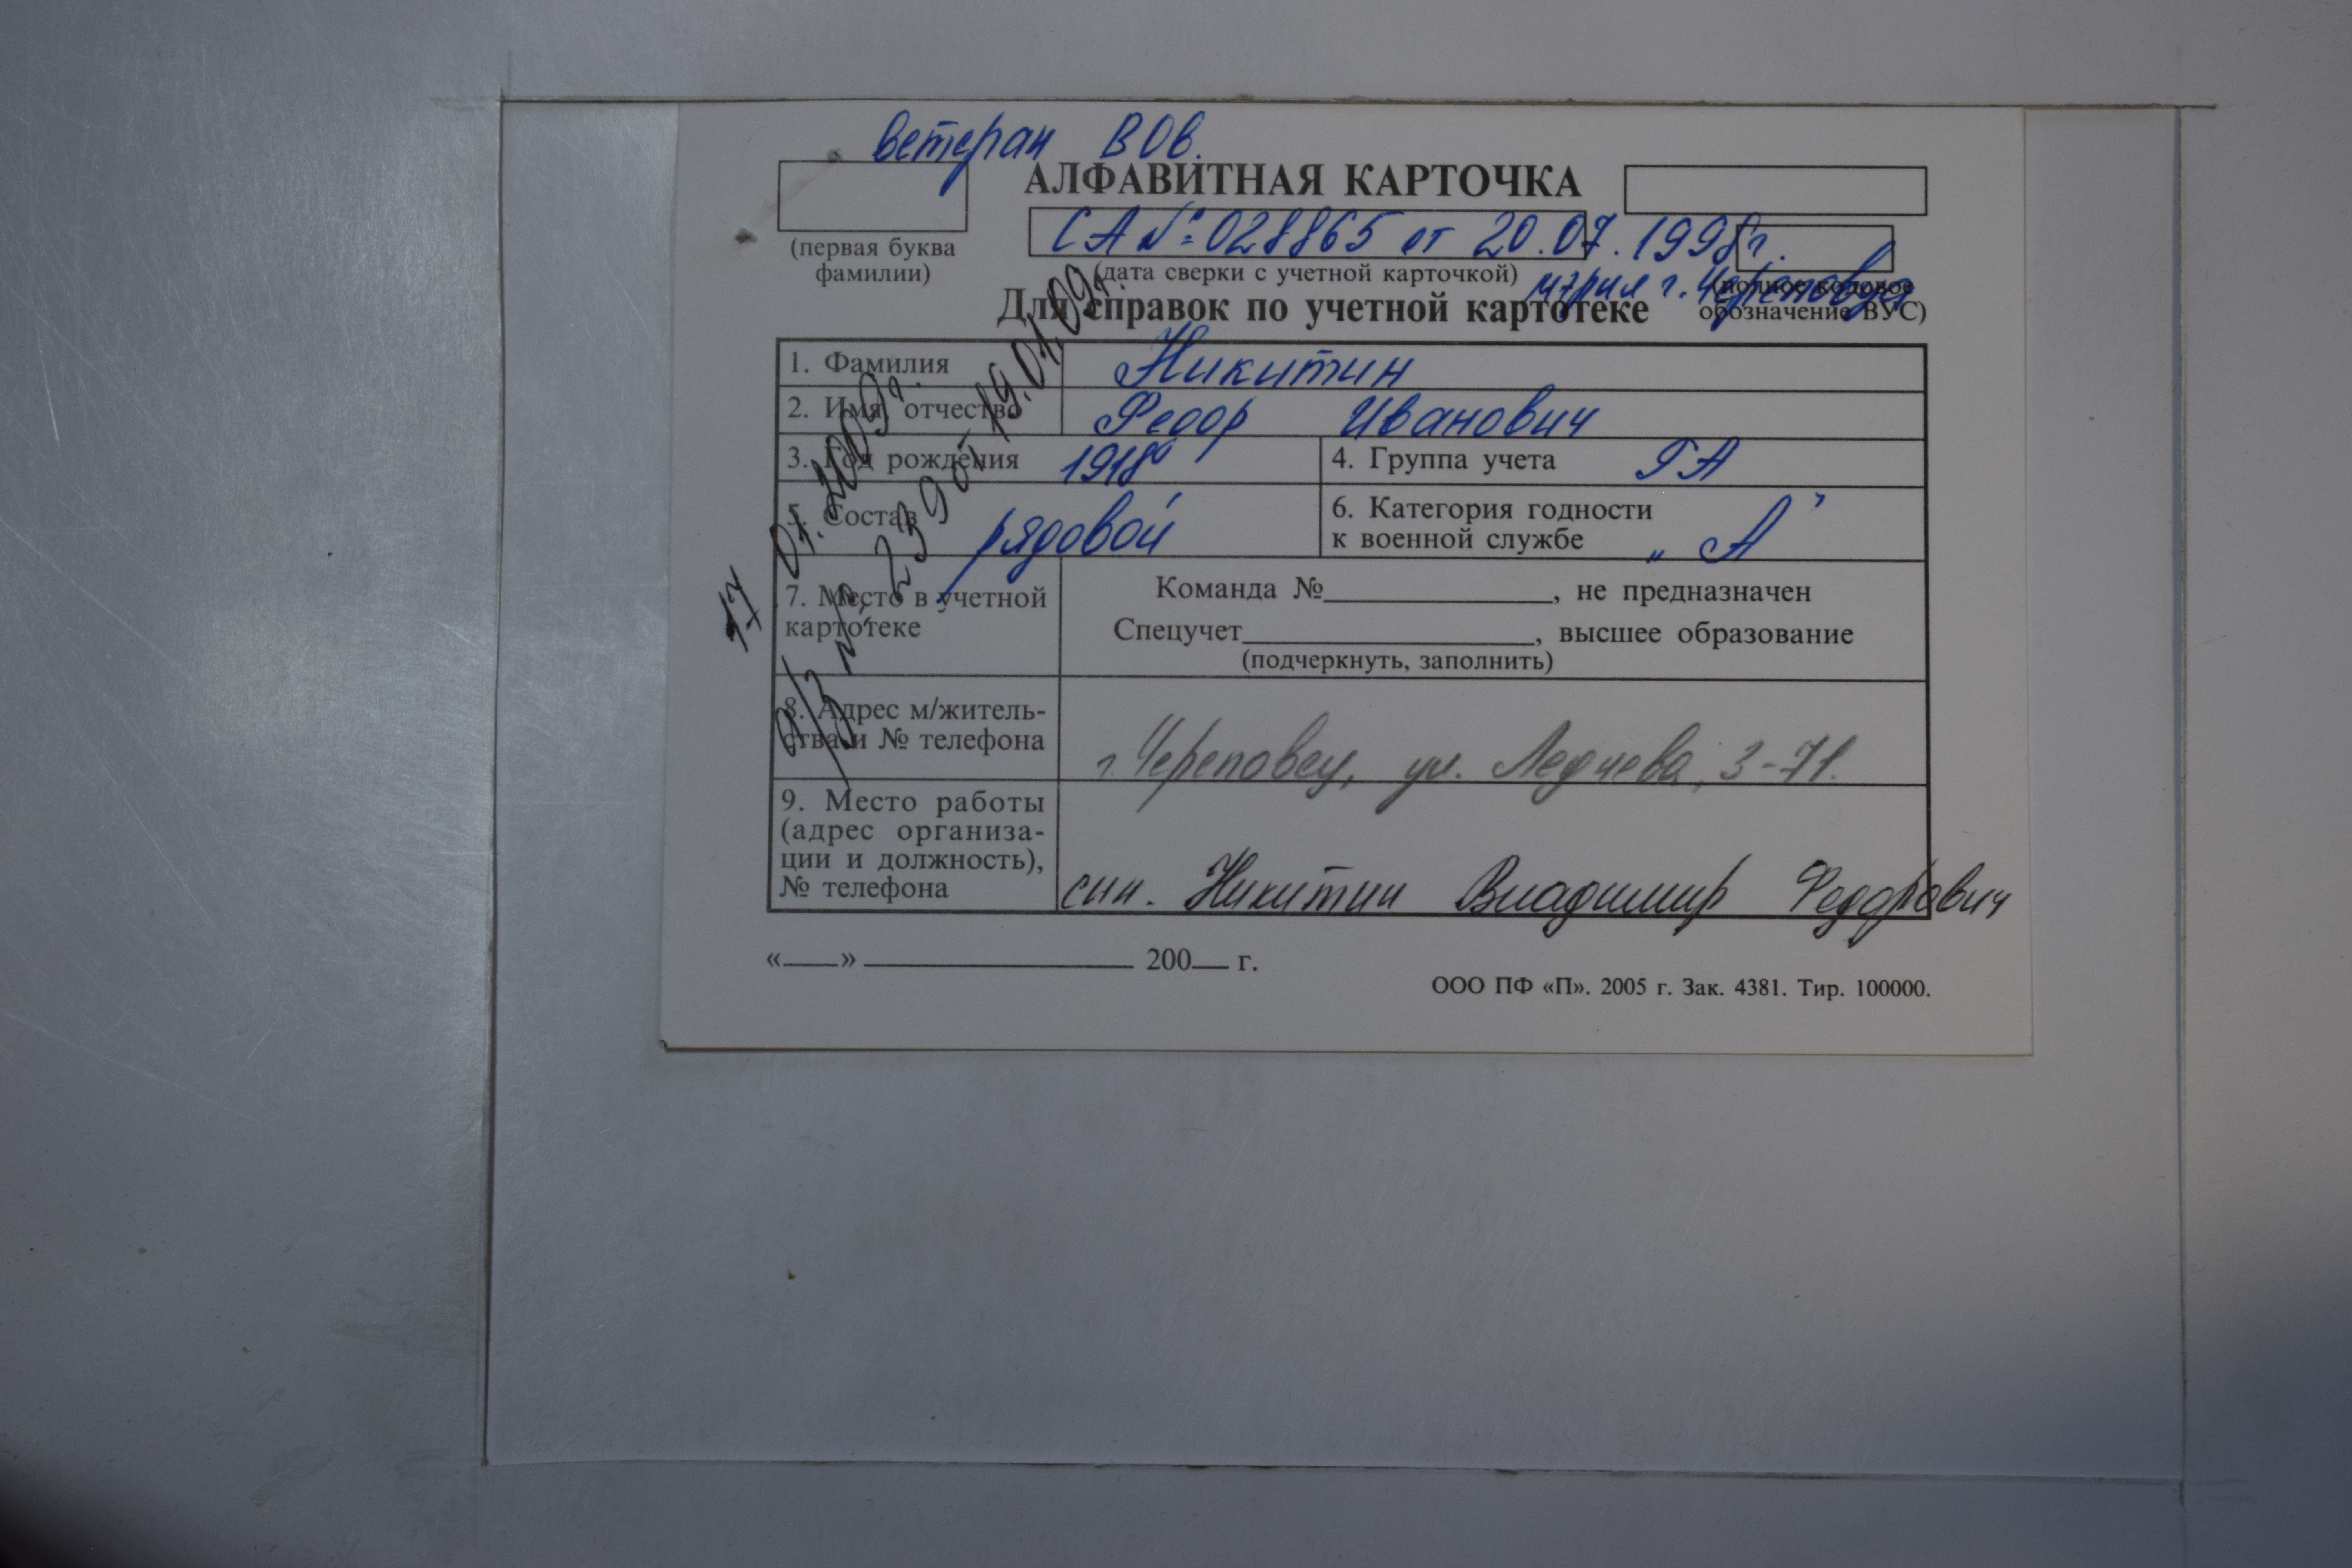 ветеран ВОв.
АЛФАВИТНАЯ КАРТОЧКА
(первая буква фамилии)
СА №: 028865 от 20.07.1998г.
(дата сверки с учетной карточкой)
мэрия г. Череповца
(полное кодовое обозначение ВУС)
Для справок по учетной картотеке
1. Фамилия Никитин
2. Имя, отчество Федор Иванович
3. Год рождения 1918
4. Группа учета РА
5. Состав рядовой
6. Категория годности к военной службе „А"
7. Место в учетной картотеке
Команда №, не предназначен
Спецучет, высшее образование
(подчеркнуть, заполнить)
8. Адрес м/житель-
ства и № телефона
г. Череповец, ул. 3-71.
9. Место работы
(адрес организа-
ции и должность),
№ телефона
сын. Никитин Владимир Федорович
17 01. 2009г.
№ 239 от 19.01.09г.
«» 200 г.
ООО ПФ «П». 2005 г. Зак. 4381. Тир. 100000.